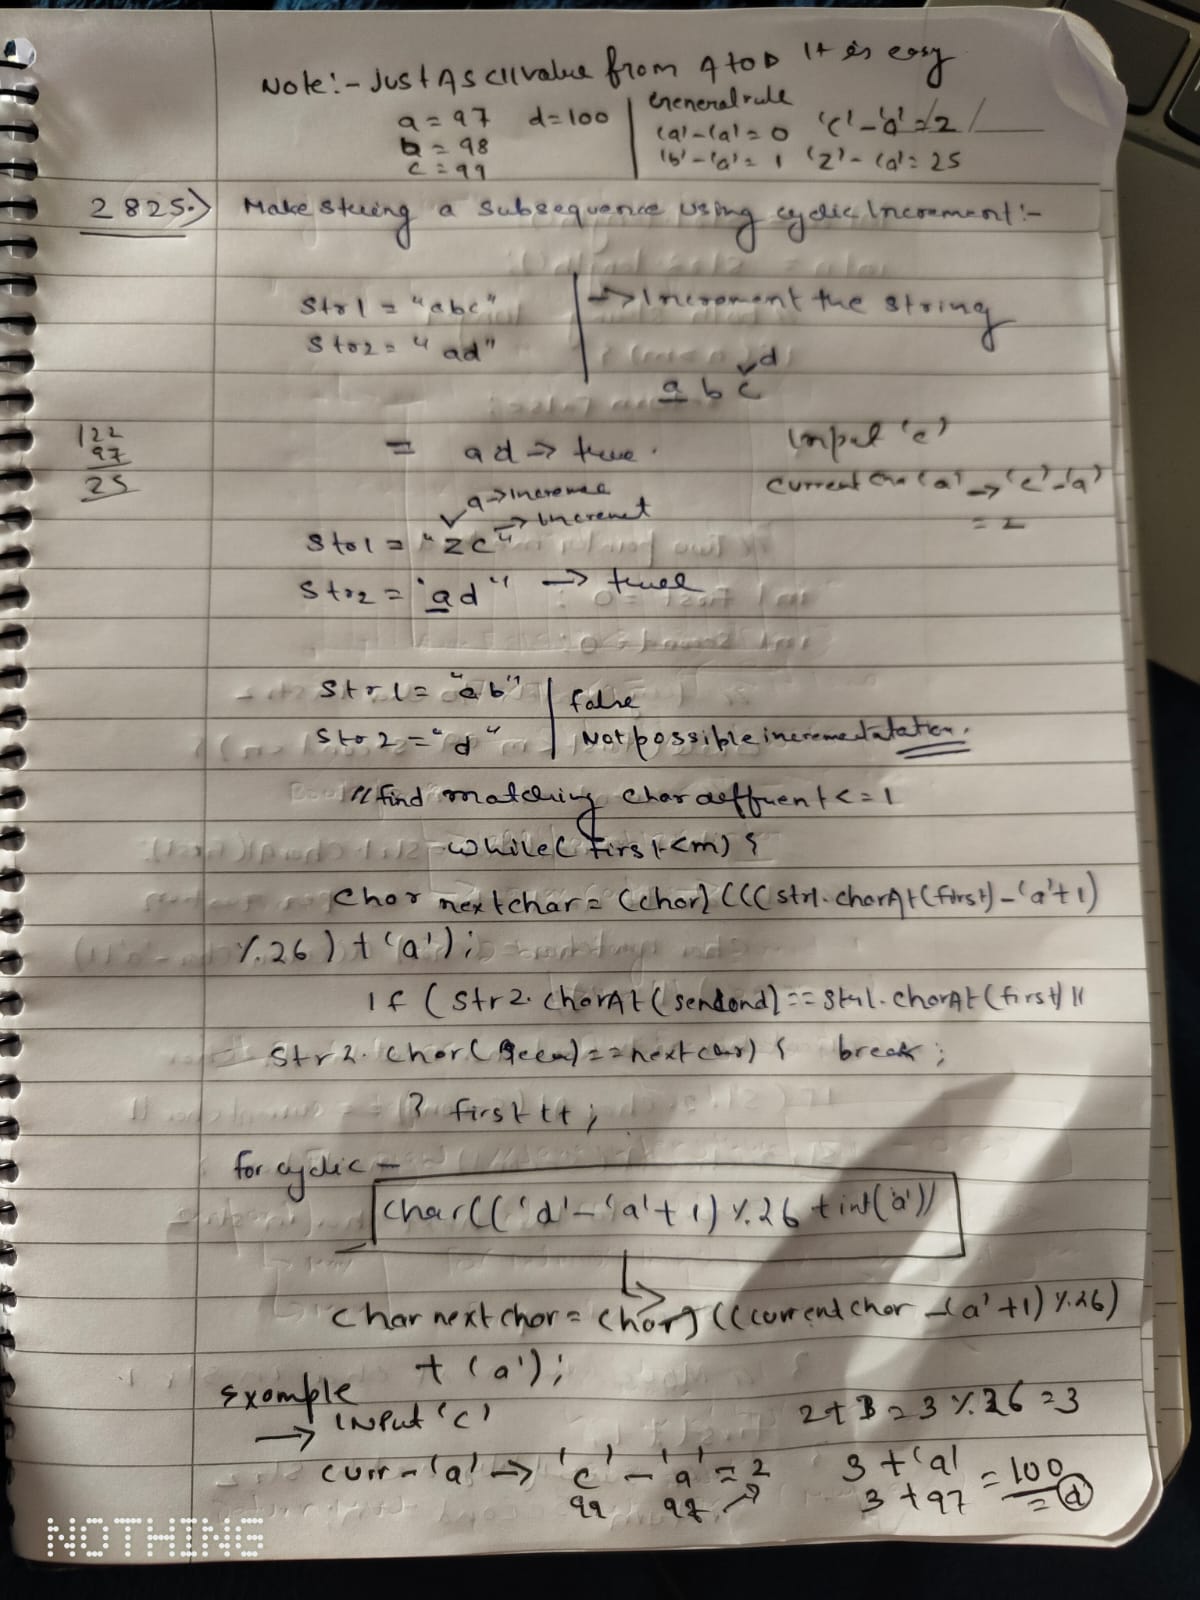 Note:- Just ASCII value from A to D It is easy
a = 97 d=100 General rule
b = 98 'a'-'a' = 0 'c'-'a' = 2
c = 99 'b'-'a' = 1 'z'-'a' = 25
2825.) Make string a subsequence using cyclic Increment:-
Str1 = "abc" → Increment the string
Str2 = "ad"
d
a b c
= ad → true. Input 'c'
122
97
25
current cha 'a' → 'c'-'a'
= 2
a → increme
→ Increnet
Str1 = "zc"
Str2 = "ad" → true
Str1 = "ab" false
Str2 = "d" Not possible incrementatation.
// find matching char deffuent <= 1
while( first < m) {
Char nextchar = (char) (((str1.charAt(first) - 'a'+1)
%26) + 'a');
If ( Str2.charAt(sendond) == Str1.charAt(first) ||
Str2.char( ) == nextchar) { break;
} first++;
for cyclic -
char(('d' - 'a' + 1) %26 + int('a'))
Char nextchar = char) ((current char - 'a' +1) %26)
+ 'a');
Example
→ INPut 'c' 2+ = 3 %26 = 3
curr - 'a' → 'c' - 'a' = 2 3 + 'a'
99 97 3 + 97 = 100 = d
NOTHING